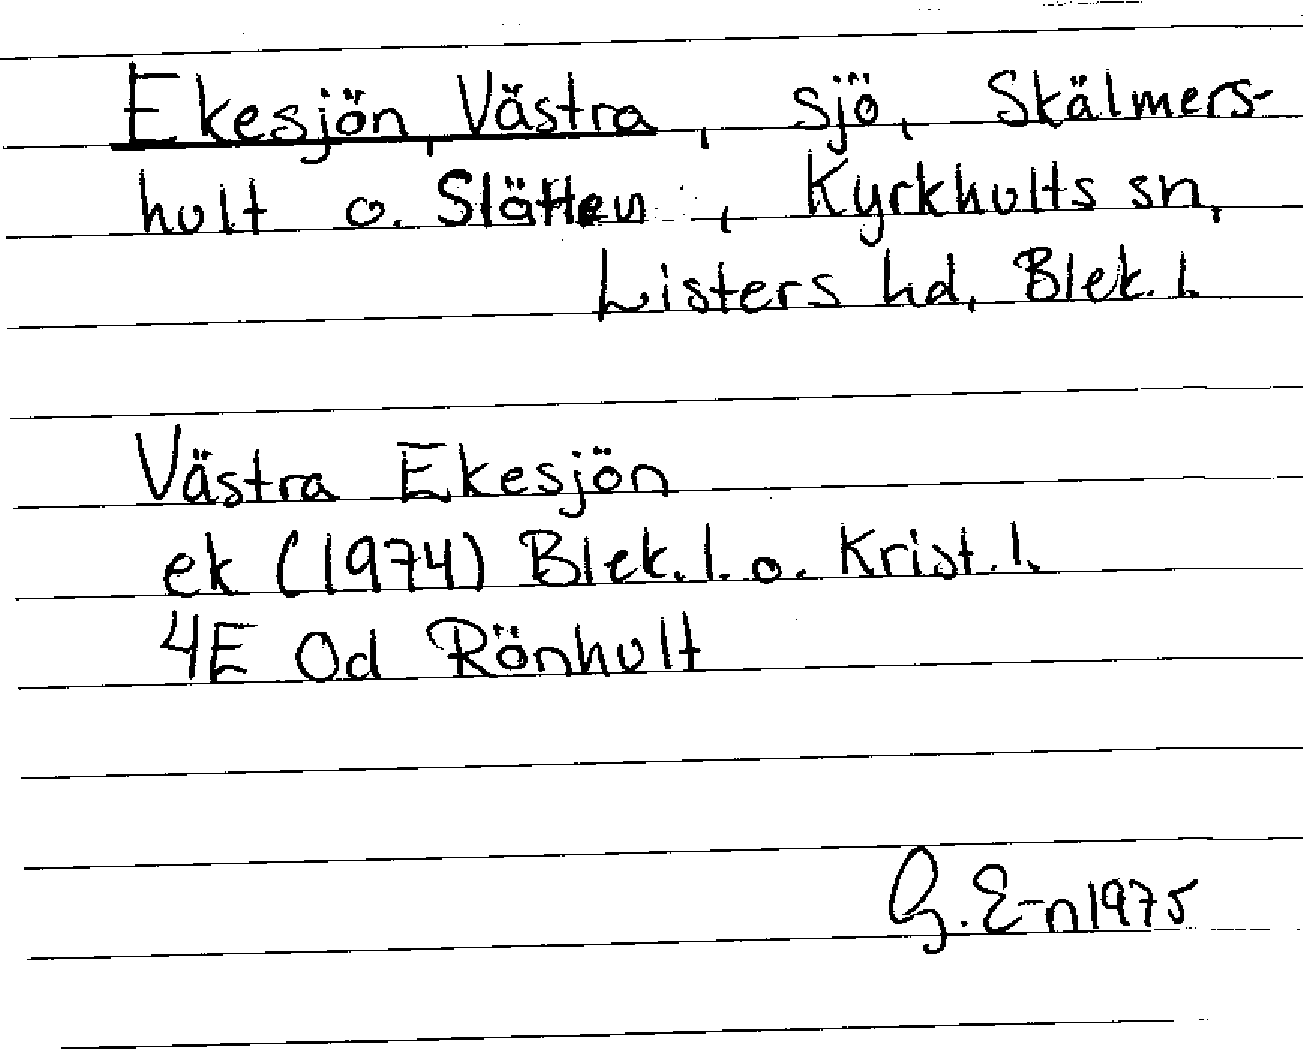 Ekesjön, Västra, sjö, Skälmers-
hult o. Slätten, Kyrkhults sn,
Listers hd, Blek. l.
Västra Ekesjön
ek (1974) Blek. l. o. Krist. l.
4E Od Rönhult
G. E-n 1975